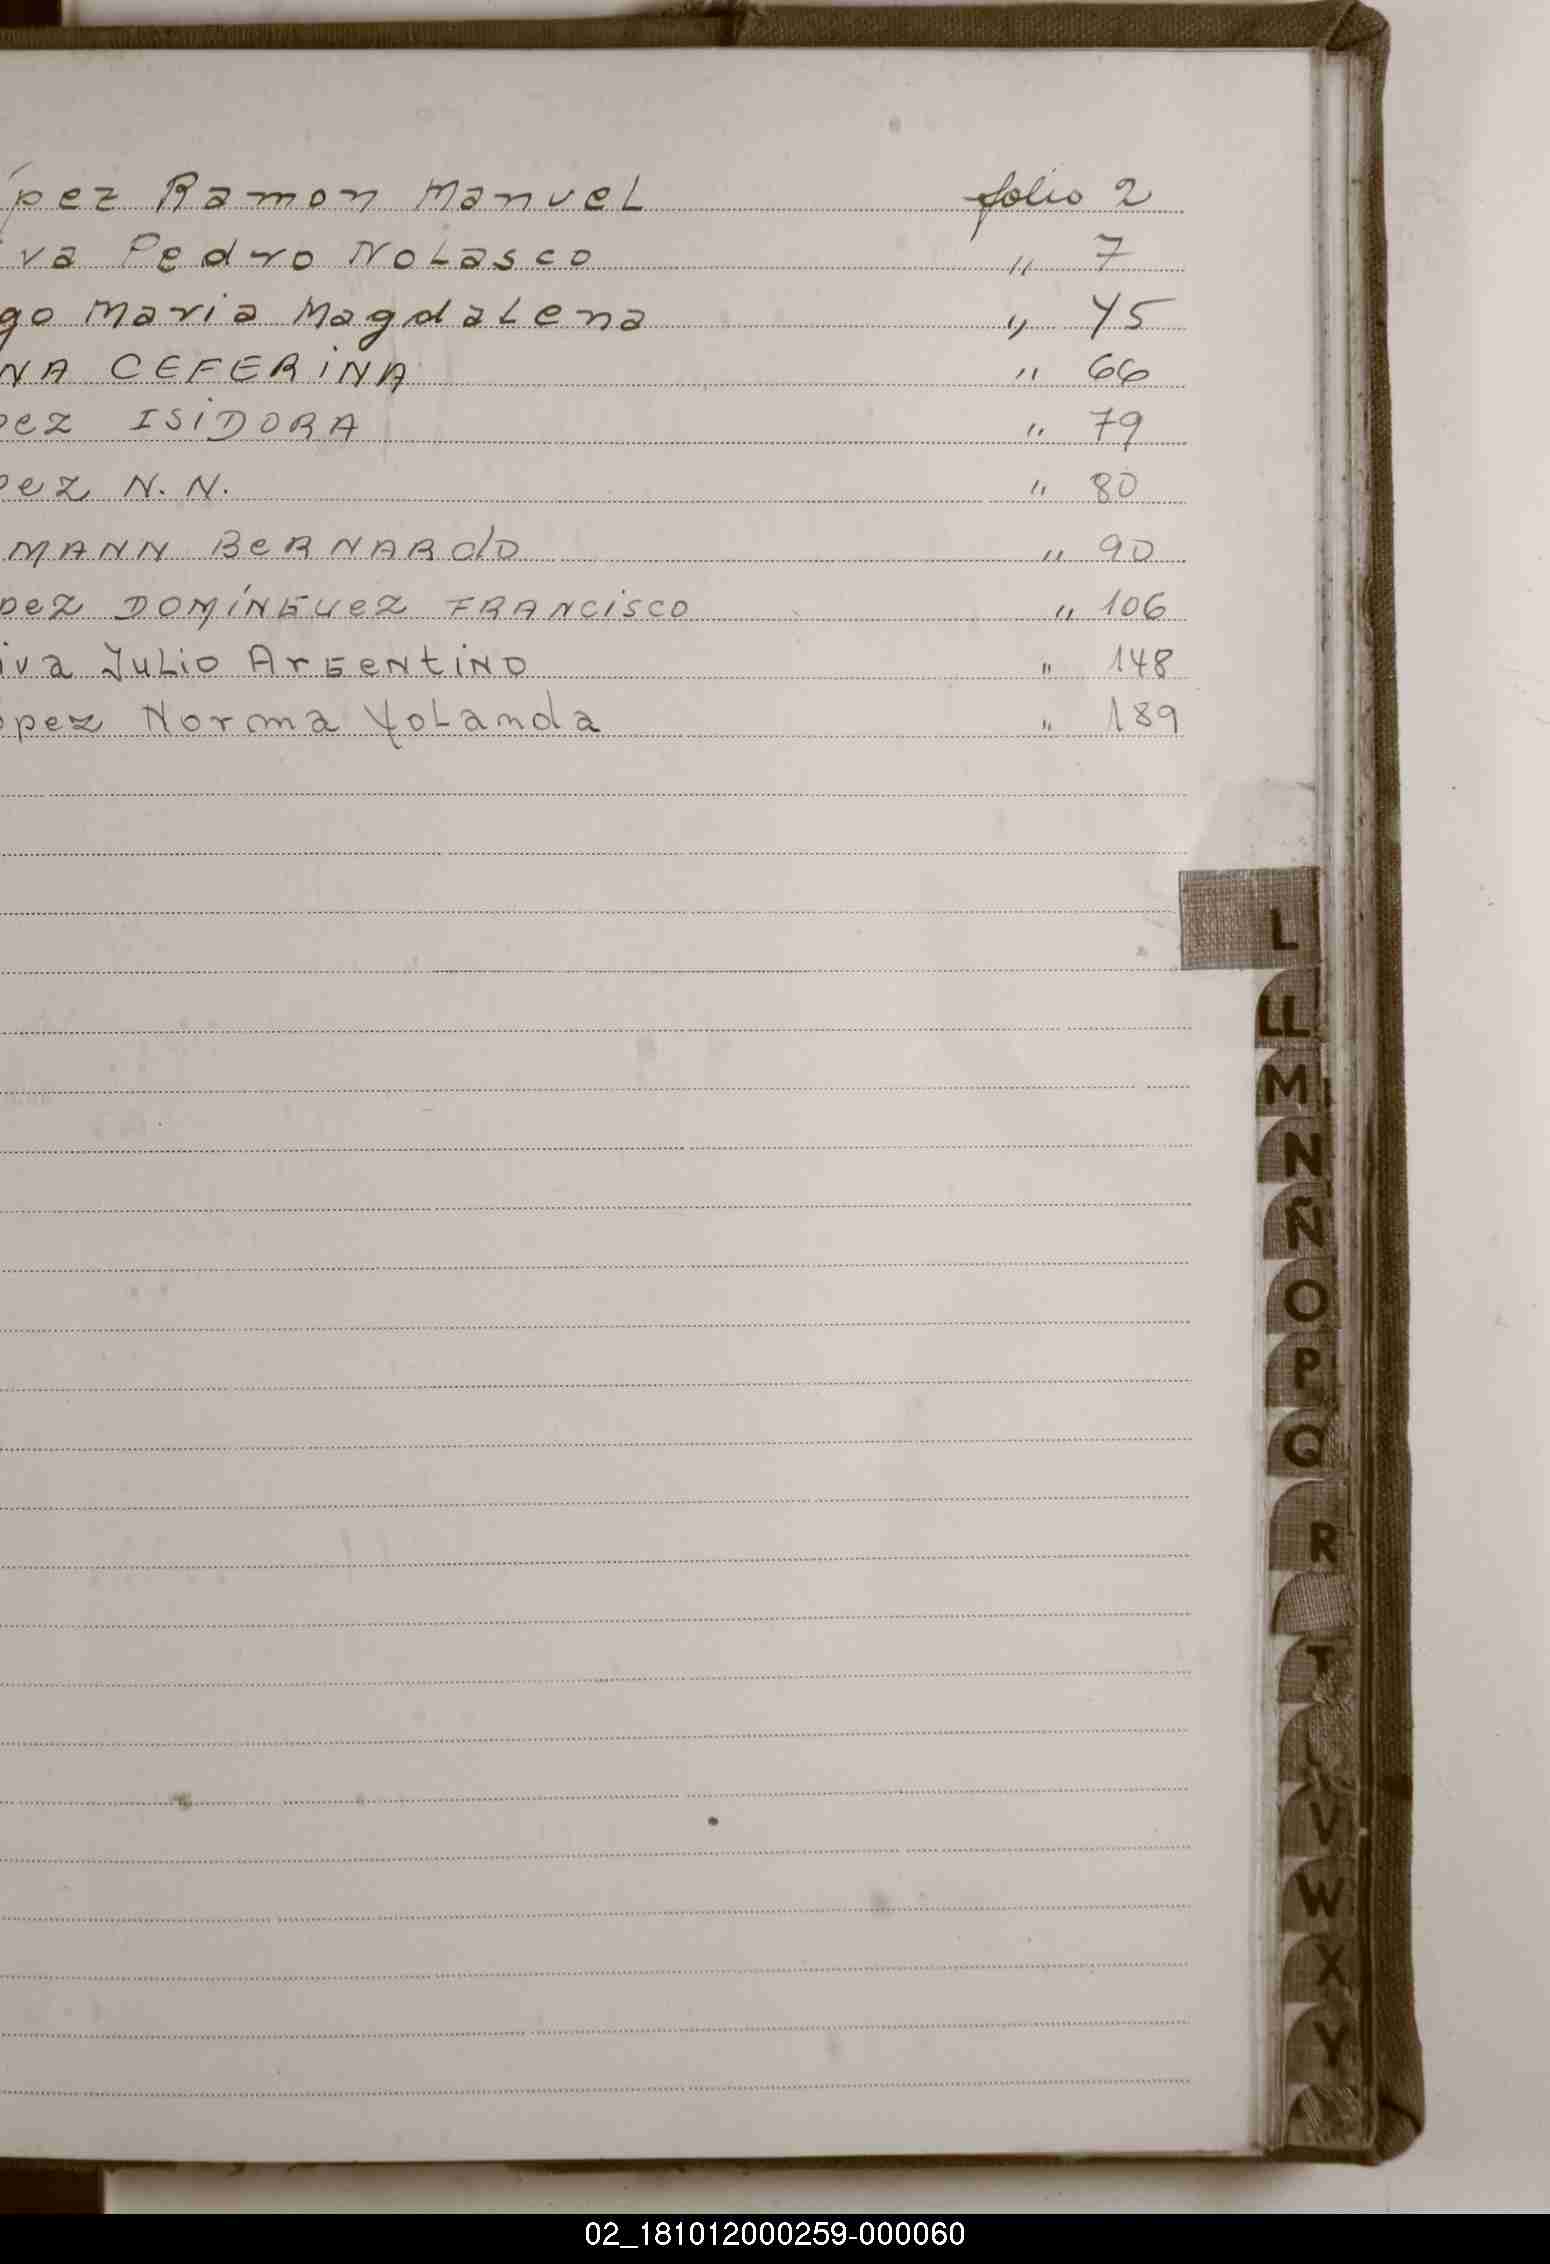 ópez Ramon Manuel folio 2
iva Pedro Nolasco " 7
go Maria Magdalena " 45
NA CEFERiNA " 66
pez ISiDORA " 79
pez N.N. " 80
MANN BeRNARdo " 90
pez DOMíNGUez FRANCisco " 106
iva Julio ArGentiNo " 148
ópez Norma Yolanda " 189
L
LL
M
N
Ñ
O
P
Q
R
T
V
W
X
Y
02_181012000259-000060